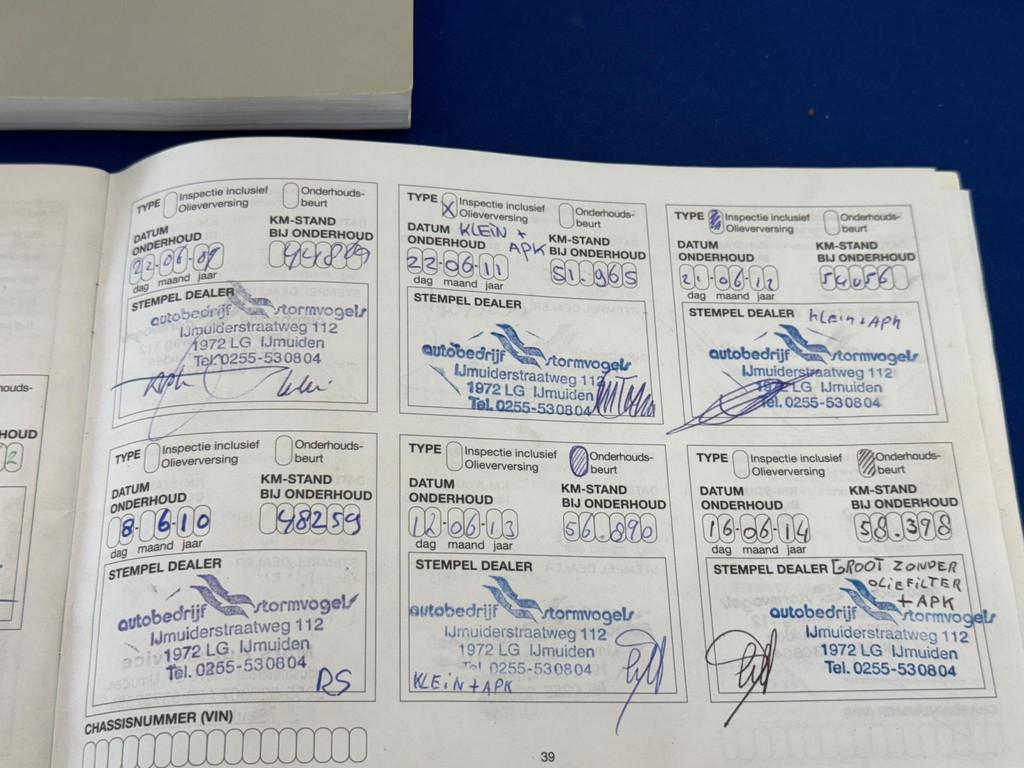 TYPE Inspectie inclusief Olieverversing Onderhouds-beurt
DATUM ONDERHOUD
KM-STAND BIJ ONDERHOUD
22-06-09
44889
dag maand jaar
STEMPEL DEALER
autobedrijf stormvogels
IJmuiderstraatweg 112
1972 LG IJmuiden
Tel. 0255-530804
Apk klein
TYPE X Inspectie inclusief Olieverversing Onderhouds-beurt
DATUM ONDERHOUD
KLEIN + APK
KM-STAND BIJ ONDERHOUD
22-06-11
51.965
dag maand jaar
STEMPEL DEALER
autobedrijf stormvogels
IJmuiderstraatweg 112
1972 LG IJmuiden
Tel. 0255-530804
TYPE Inspectie inclusief Olieverversing Onderhouds-beurt
DATUM ONDERHOUD
KM-STAND BIJ ONDERHOUD
21-06-12
54056
dag maand jaar
STEMPEL DEALER
klein + APK
autobedrijf stormvogels
IJmuiderstraatweg 112
1972 LG IJmuiden
Tel. 0255-530804
TYPE Inspectie inclusief Olieverversing Onderhouds-beurt
DATUM ONDERHOUD
KM-STAND BIJ ONDERHOUD
8-6-10
48259
dag maand jaar
STEMPEL DEALER
autobedrijf stormvogels
IJmuiderstraatweg 112
1972 LG IJmuiden
Tel. 0255-530804
RS
TYPE Inspectie inclusief Olieverversing Onderhouds-beurt
DATUM ONDERHOUD
KM-STAND BIJ ONDERHOUD
12-06-13
56.890
dag maand jaar
STEMPEL DEALER
autobedrijf stormvogels
IJmuiderstraatweg 112
1972 LG IJmuiden
Tel. 0255-530804
KLEIN + APK
TYPE Inspectie inclusief Olieverversing Onderhouds-beurt
DATUM ONDERHOUD
KM-STAND BIJ ONDERHOUD
16-06-14
58.398
dag maand jaar
STEMPEL DEALER
GROOT ZONDER
OLIEFILTER
+ APK
autobedrijf stormvogels
IJmuiderstraatweg 112
1972 LG IJmuiden
Tel. 0255-530804
CHASSISNUMMER (VIN)
39